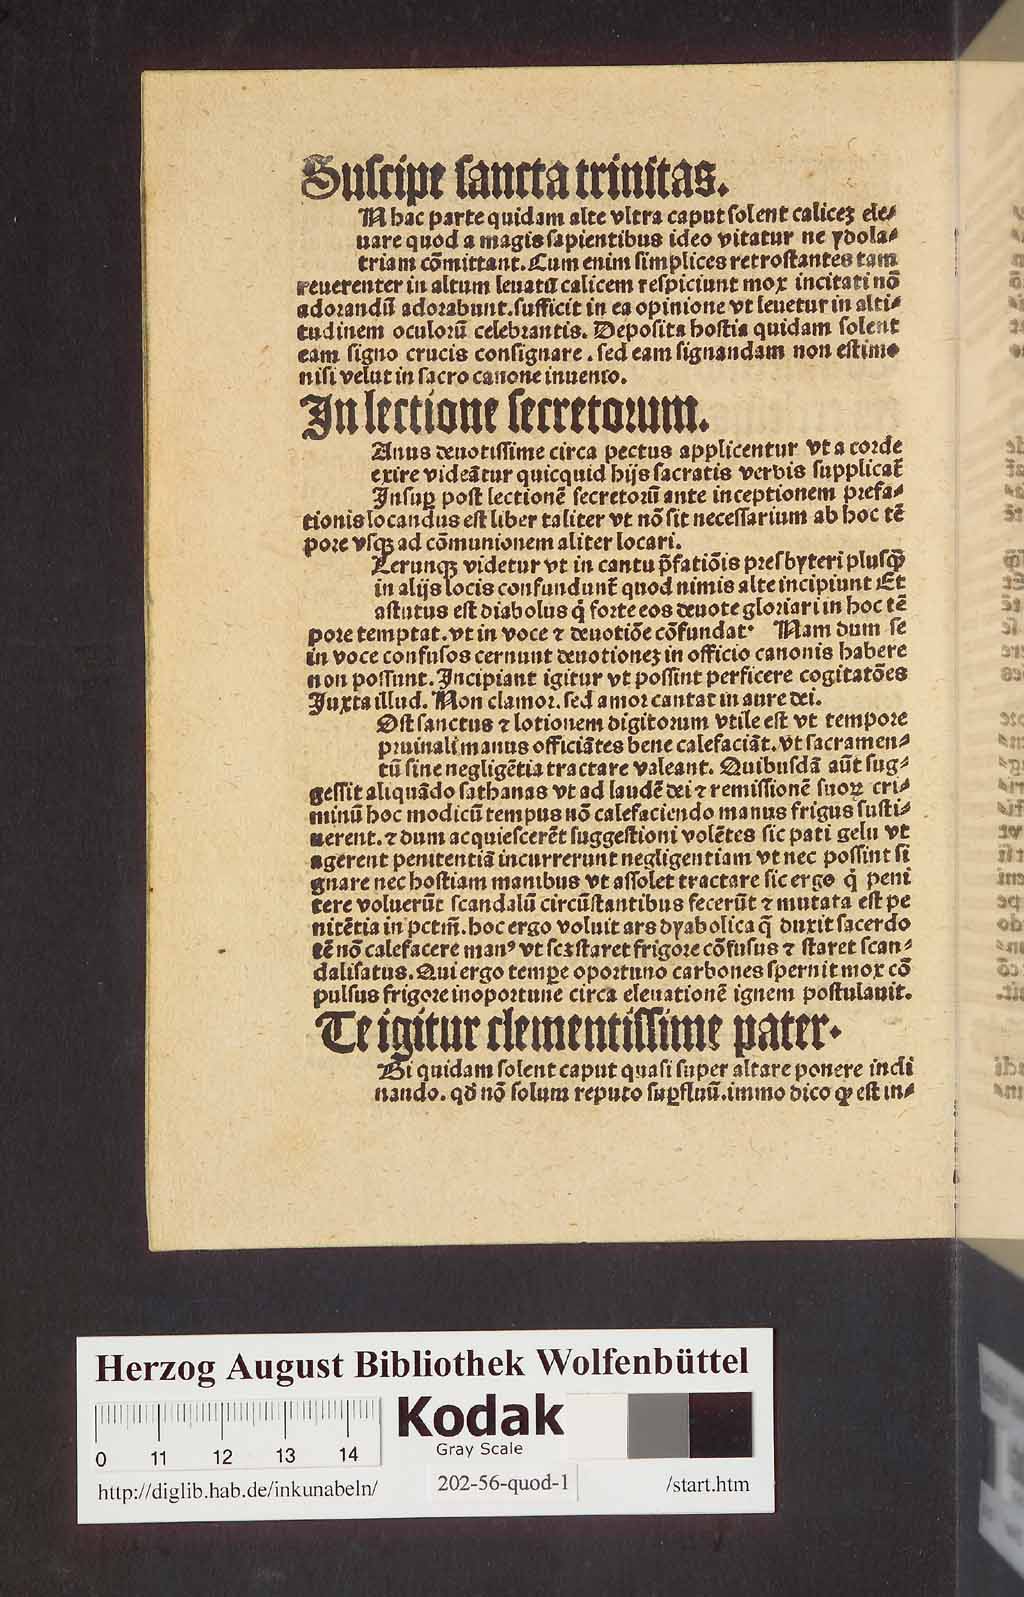 Suscipe sancta trinitas.
N hac parte quidam alte vltra caput solent calicez ele⸗
uare quod a magis sapientibus ideo vitatur ne ydola⸗
triam cōmittant. Cum enim simplices retrostantes tam
reuerenter in altum leuatū calicem respiciunt mox incitati nō
adorandū adorabunt. sufficit in ea opinione vt leuetur in alti⸗
tudinem oculorū celebrantis. Deposita hostia quidam solent
eam signo crucis consignare. sed eam signandam non estimo
nisi velut in sacro canone inuento.
In lectione secretorum.
Anus deuotissime circa pectus applicentur vt a corde
exire videātur quicquid hijs sacratis verbis supplicat᷑
Insuꝑ post lectionē secretorū ante inceptionem prefa⸗
tionis locandus est liber taliter vt nō sit necessarium ab hoc tē
pore vsqꝫ ad cōmunionem aliter locari.
Lerunqꝫ videtur vt in cantu p̄fatiōis presbyteri plusq̄
in alijs locis confundunt᷑ quod nimis alte incipiunt Et
astutus est diabolus q̇ forte eos deuote gloriari in hoc tē
pore temptat. vt in voce ⁊ deuotiōe cōfundat· Nam dum se
in voce confusos cernunt deuotionez in officio canonis habere
non possunt. Incipiant igitur vt possint perficere cogitatōes
Juxta illud. Non clamor. sed amor cantat in aure dei.
Ost sanctus ⁊ lotionem digitorum vtile est vt tempore
pruinali manus officiātes bene calefaciāt. vt sacramen⸗
tū sine negligētia tractare valeant. Quibusdā aūt sug⸗
gessit aliquādo sathanas vt ad laudē dei ⁊ remissionē suoꝝ cri⸗
minū hoc modicū tempus nō calefaciendo manus frigus susti⸗
nerent. ⁊ dum acquiescerēt suggestioni volētes sic pati gelu vt
agerent penitentiā incurrerunt negligentiam vt nec possint si
gnare nec hostiam manibus vt assolet tractare sic ergo q̇ peni
tere voluerūt scandalū circūstantibus fecerūt ⁊ mutata est pe
nitētia in pctm̄. hoc ergo voluit ars dyabolica q̄ duxit sacerdo
tē nō calefacere manꝰ vt scꝫ staret frigore cōfusus ⁊ staret scan⸗
dalisatus. Qui ergo tempe oportuno carbones spernit mox cō
pulsus frigore inoportune circa eleuationē ignem postulauit.
Te igitur clementissime pater·
Bi quidam solent caput quasi super altare ponere incli
nando. qđ nō solum reputo suꝑfluū. immo dico ꝙ est in⸗
Herzog August Bibliothek Wolfenbüttel
Kodak
Gray Scale
0 11 12 13 14
http://diglib.hab.de/inkunabeln/ 202-56-quod-1 /start.htm